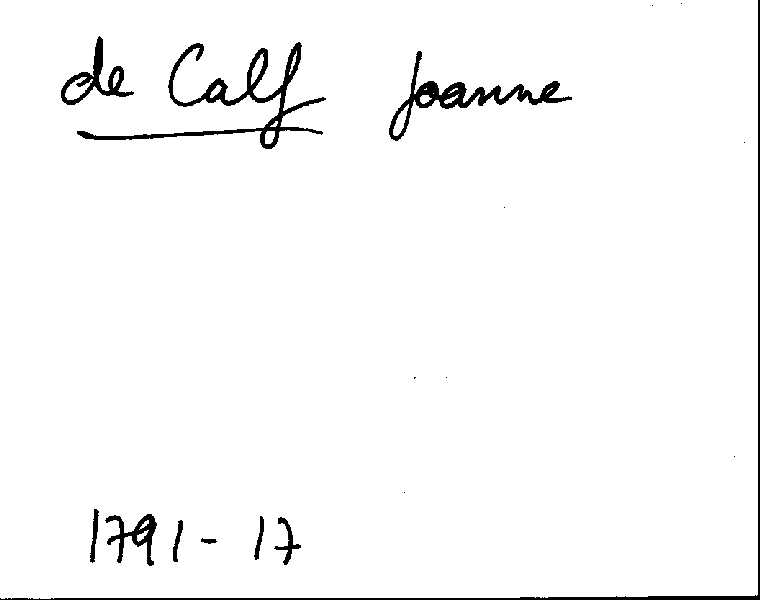 de Calf Joanne
1791-17